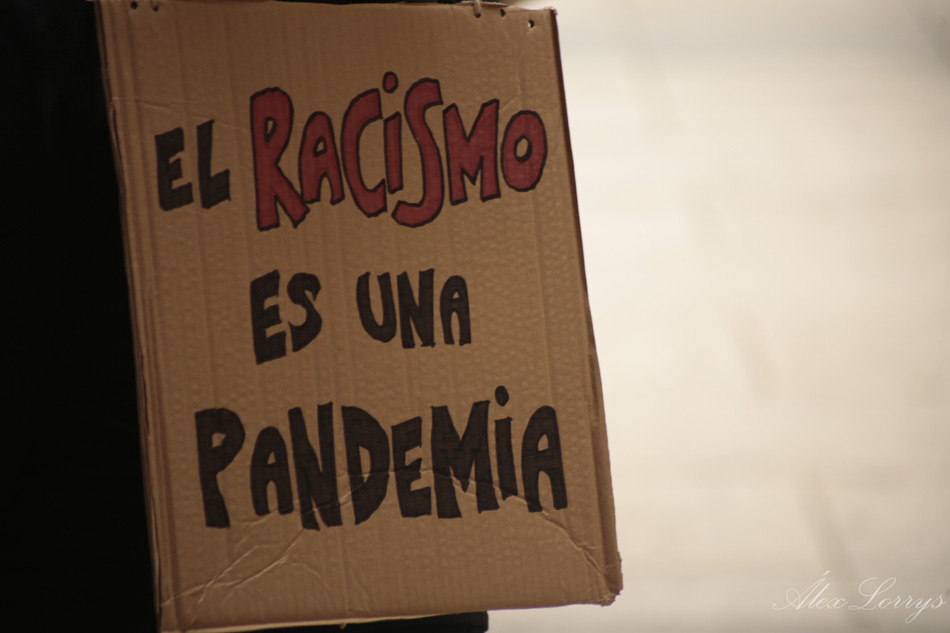 EL RACISMO
ES UNA
PANDEMIA
Álex Lorrys